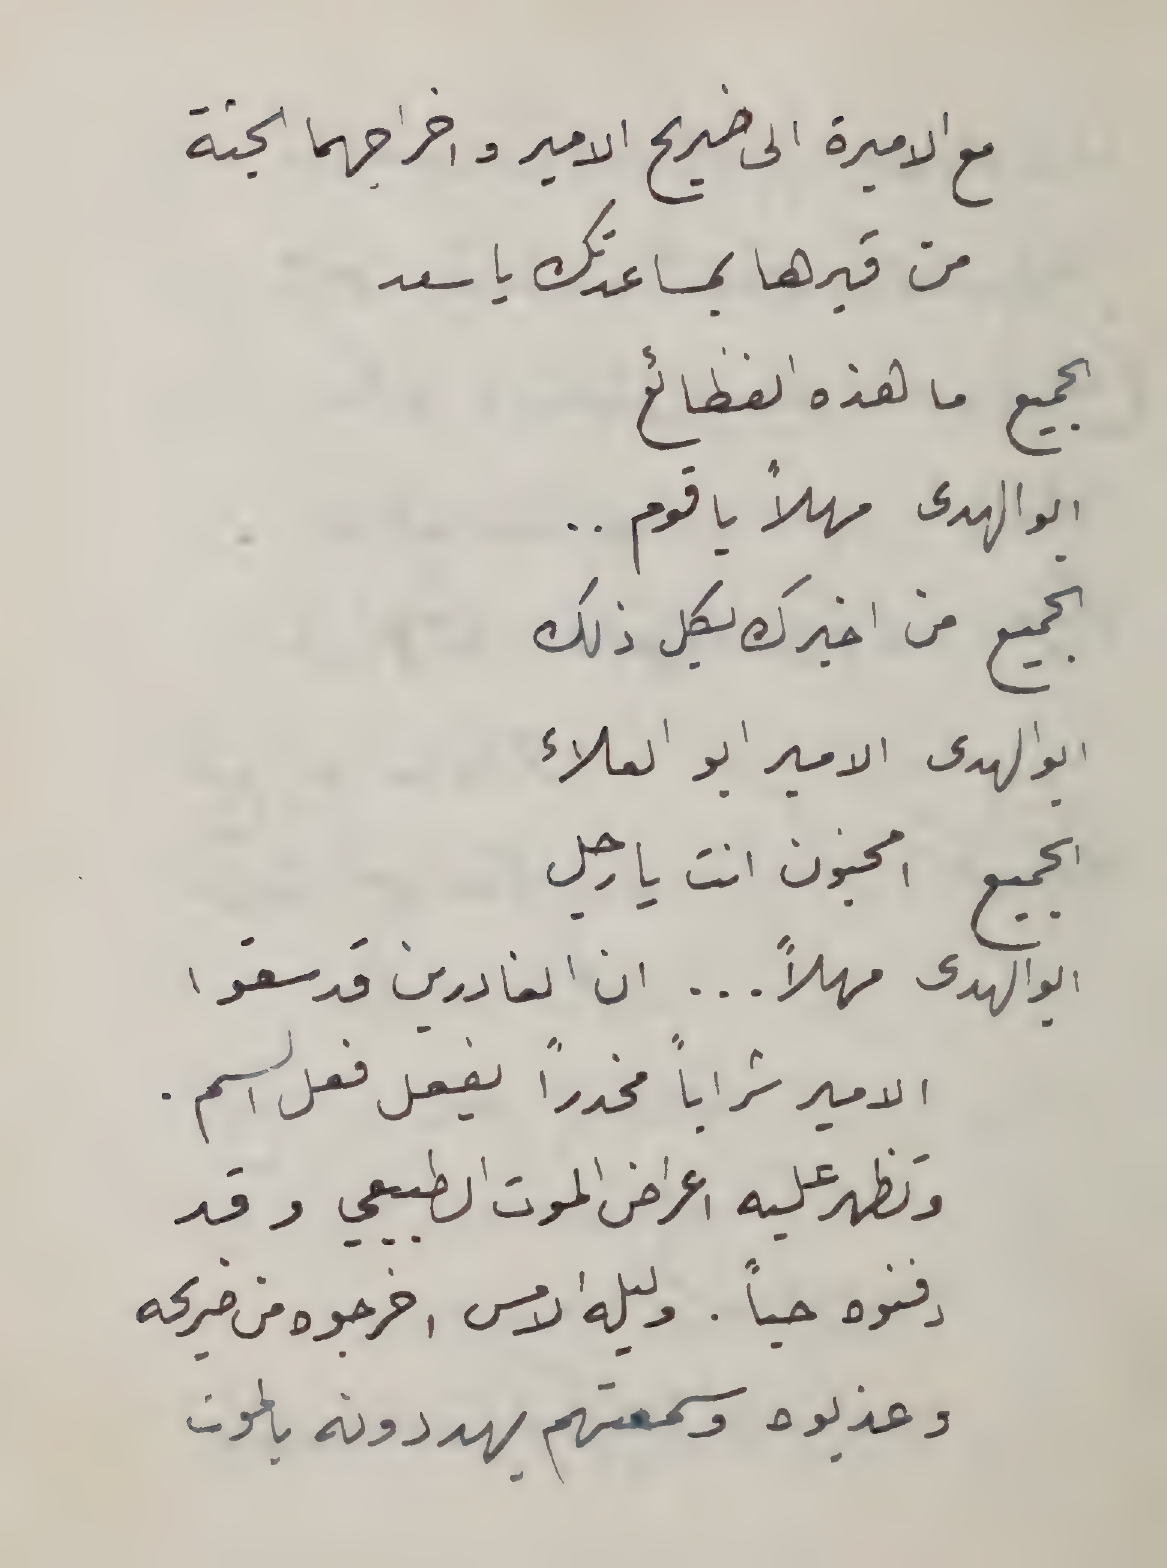 مع الاميرة الى ضريح الامير و اخراجهما الجثة
من قبرها بمساعدتك يا سعد
الجميع ما هذه الفظائع
ابو الهدى مهلاً يا قوم ..
الجميع من اخبرك بكل ذلك
ابو الهدى الامير ابو العلاء
الجميع امجنون انت يا رجل
ابو الهدى مهلاً ... ان الغادرين قد سقوا
الامير شراباً مخدراً يفعل فعل السم .
وتظهر عليه اعراض الموت الطبيعي و قد
دفنوه حياً . وليله الامس اخرجوه من ضريحه
وعذبوه وسمعتهم يهددونه بالموت